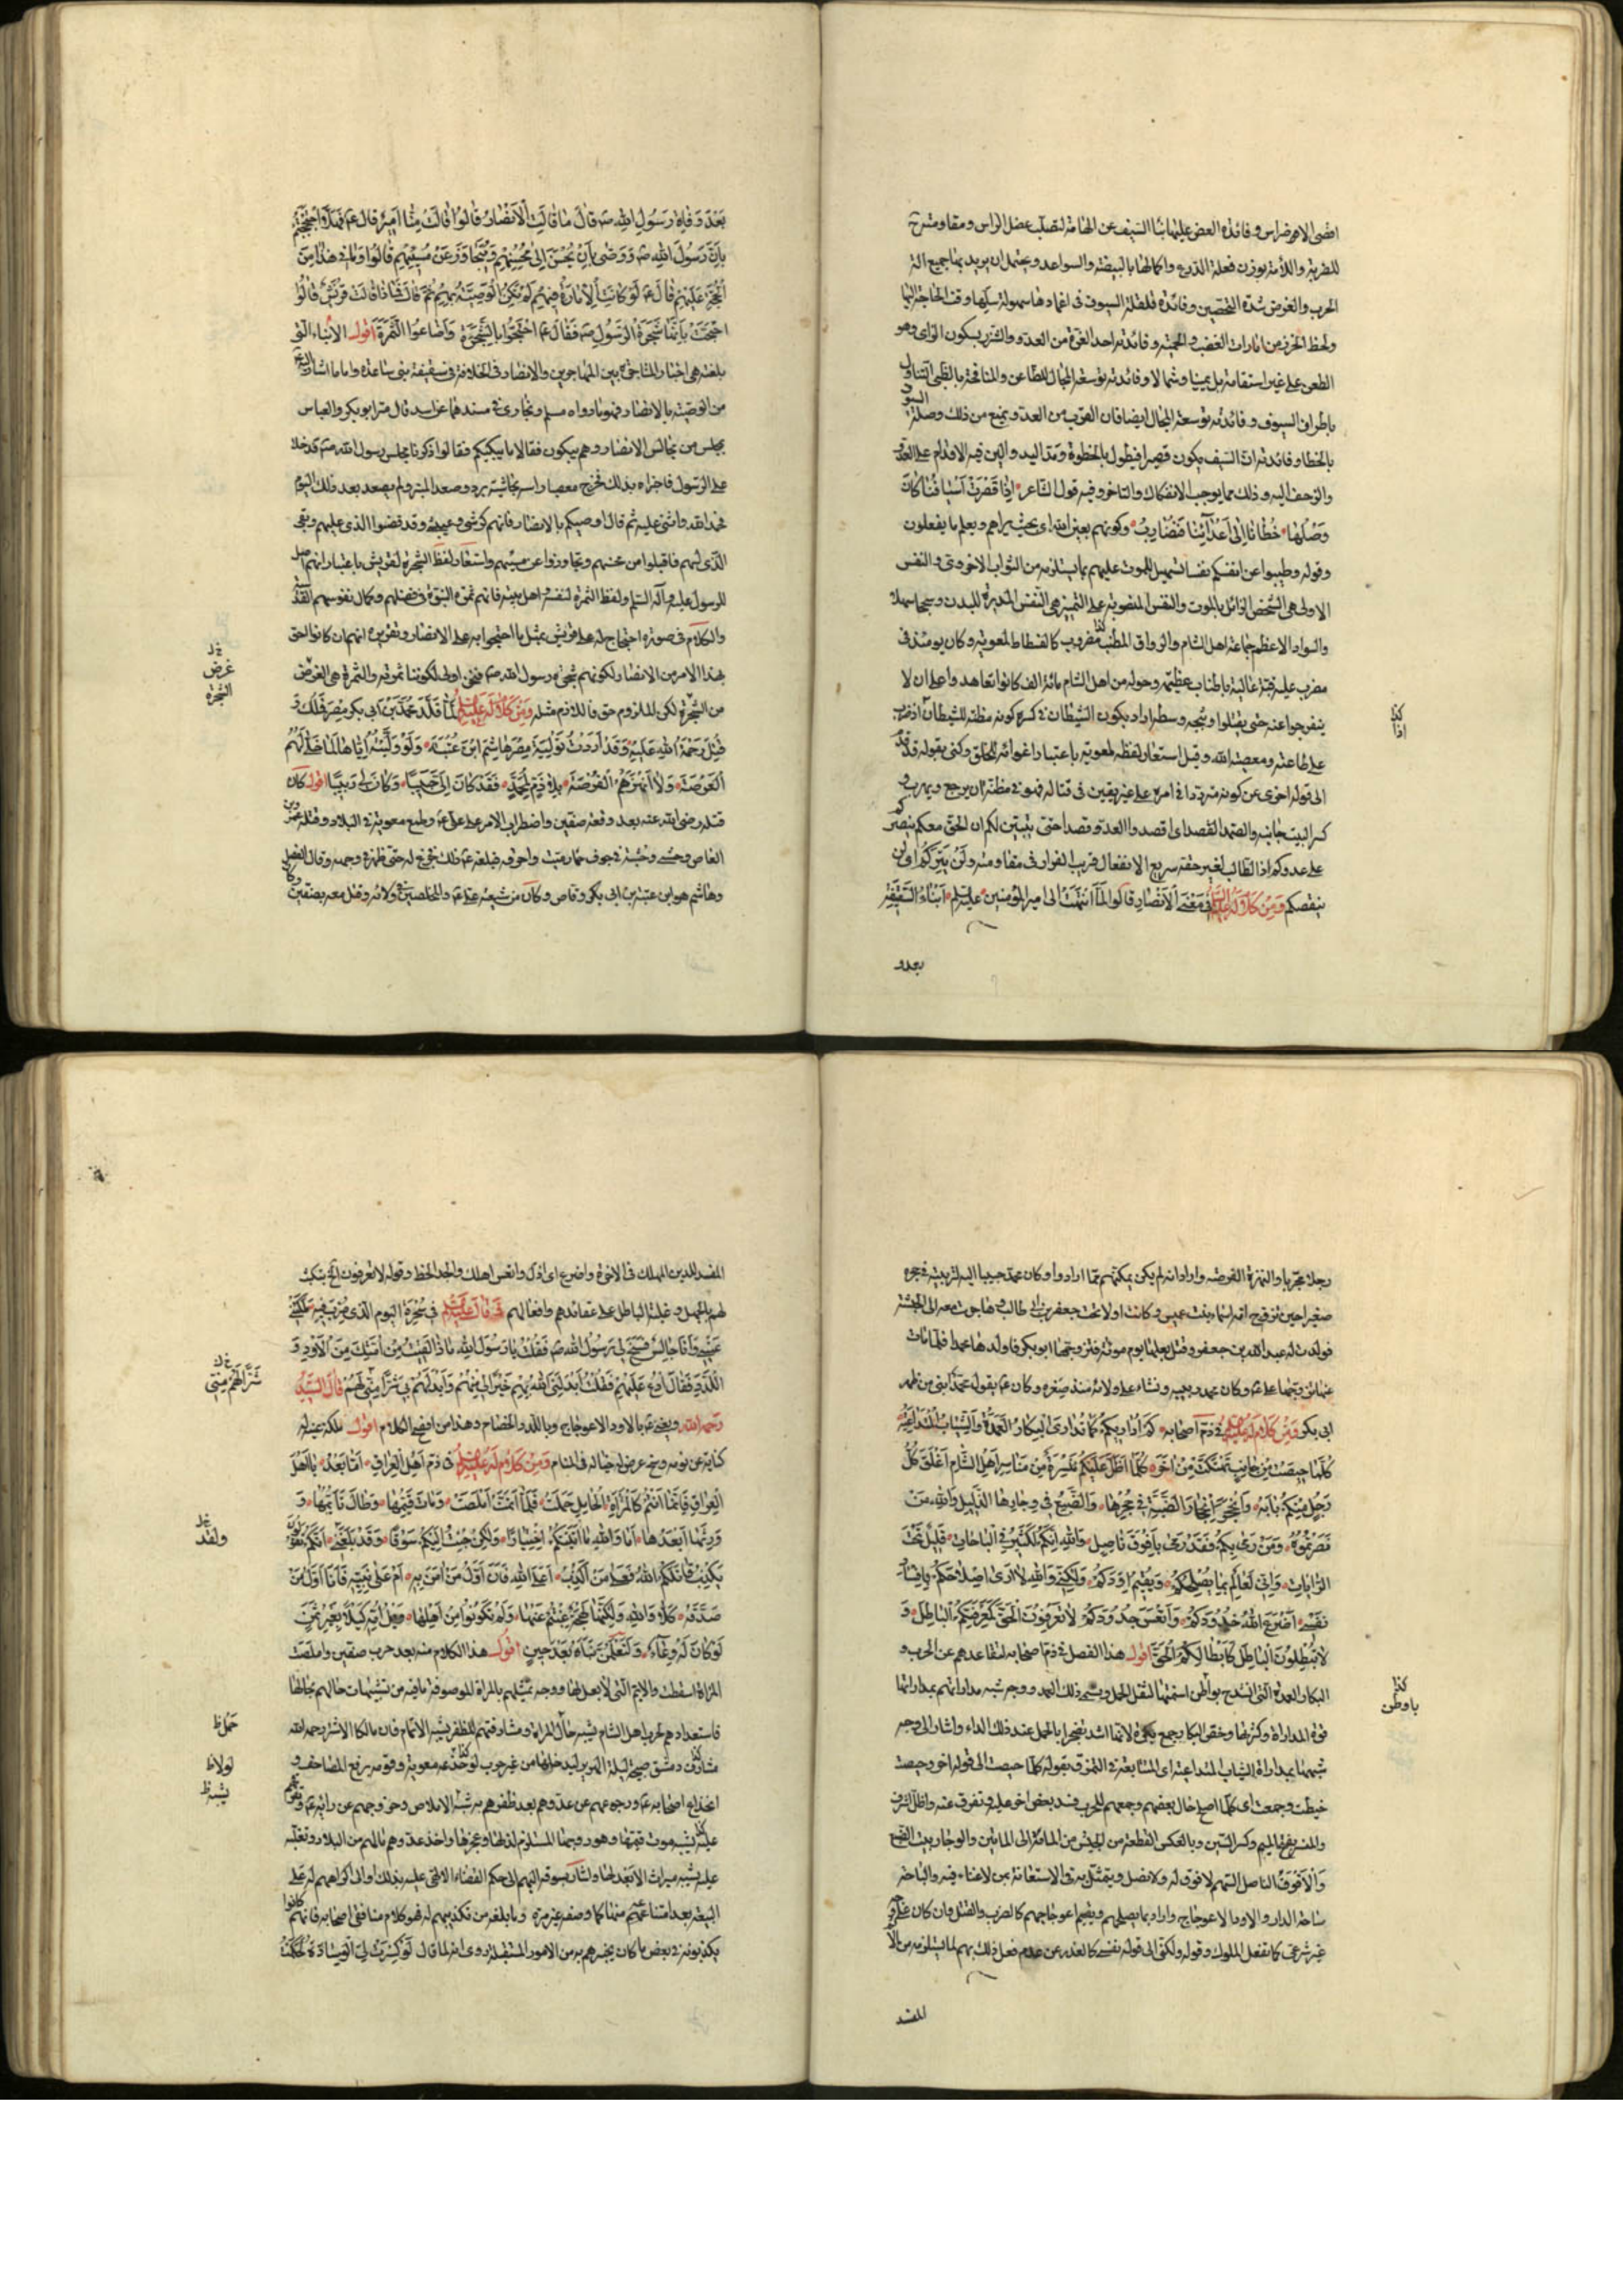 اقصى الاضراس وفائدة العض عليها نبا السيف عن الهامة لتصلب عضل الراس ومقاومته ح
للضربة واللأمة بوزن فعلة الدرع واكمالها بالبيضة والسواعد ويحتمل ان يريد بها جميع الة
الحرب والغرض شدة التحصين وفائدة قلقلة السيوف فى اغمادها سهولة سلها وقت الحاجة اليها
ولحظ الخزر من امارات الغضب والحمية وفائدته اخذ الغرة من العدو والشزر بسكون الزاى وهو
الطعن على غير استقامة بل يمينا وشمالا وفائدته توسعة المجال للطاعن والمنافحة بالظبى التناول
باطراف السيوف وفائدته توسعة المجال ايضا فان القرب من العدو يمنع من ذلك وصلة السيوف
بالخطا وفائدته ان السيف يكون قصيرا فيطول بالخطوة ومد اليد والين فيه الاقدام على العدو
والزحف اليه وذلك مما يوجب الانفكاك والتاخر وفيه قول الشاعر اِذَا قَصُرَتْ اَسْيَافُنَا كَانَ
وَصْلُهَا خُطَانَا اِلَى اَعْدَآئِنَا فَنُضَارِبُ وكونهم بعين الله اى بحيث يراهم ويعلم ما يفعلون
وقوله وطيبوا عن انفسكم نفسا تسهيل للموت عليهم بما يستلزمه من الثواب الاخروى والنفس
الاولى هى الشخص الزائل بالموت والنفس المنصوبة على التميز هى النفس المدبرة للبدن وسجحا سهلا
والسواد الاعظم جماعة اهل الشام والرواق المطنب مضروب كالفسطاط لمعوية وكان يومئذ فى
مضرب عليه قبة عالية باطناب عظيمة وحوله من اهل الشام مائة الف كانوا تعاهدوا على ان لا
ينفرجوا عنه حتى يقتلوا وثبجه وسطه واراد بكون الشيطان فى كسره كونه مظنة للشيطان اذ ضرب
على طاعته ومعصية الله وقيل استعار لفظه لمعوية باعتبار اغوائه للخلق وكنى بقوله قد قدم
الى قوله اخرى عن كونه مترددا فى امره على غير يقين فى قتاله فهو فى مظنة ان يرجع ويهرب و
كسر البيت جانبه والصمد القصد اى اقصدوا العدو قصدا حتى يتبين لكم ان الحق معكم بنصركم
على عدوكم اذ الطالب لغير حقه سريع الانفعال قريب الفرار فى مقاومته وَلَنْ يَتِرَكُمْ اى لن
ينقصكم وَمِنْ كَلَامٍ لَهُ عليه السلم فى مَعْنَى اَلْاَنْصَارِ قَالُوا لَمَّا انْتَهَتْ اِلَى امير المؤمنين عليه السلم اَنْبَاءُ السَّقِيفَةِ
بعد و
كذا
اذا
بَعْدَ وَفَاةِ رَسُولِ اللهِ صه قَالَ مَا قَالَتِ اَلْاَنْصَارُ قَالُوا قَالَتْ مِنَّا اَمِيرٌ قَالَ عه فَهَلَّا احْتَجَجْتُمْ
بِاَنَّ رَسُولَ اللهِ صه وَصَّى بِاَنْ يُحْسَنَ اِلَى مُحْسِنِهِمْ وَيُتَجَاوَزَ عَنْ مُسِيئِهِمْ قَالُوا وَمَا فِى هَذَا مِنَ
الْحُجَّةِ عَلَيْهِمْ قَالَ عه لَوْ كَانَتِ الْاِمَارَةُ فِيهِمْ لَمْ تَكُنِ الْوَصِيَّةُ بِهِمْ ثُمَّ قَالَ فَمَاذَا قَالَتْ قُرَيْشٌ قَالُوا
احْتَجَّتْ بِاَنَّهَا شَجَرَةُ الرَّسُولِ صه فَقَالَ عه احْتَجُّوا بِالشَّجَرَةِ وَاَضَاعُوا الثَّمَرَةَ اقول الانباء التى
بلغته هى اخبار المشاجرة بين المهاجرين والانصار فى الخلافة فى سقيفة بنى ساعدة واما ما اشار اليه
من الوصية بالانصار فهو ما رواه مسلم وبخارى فى مسندهما عن انس قال مر ابو بكر والعباس
بمجلس من مجالس الانصار وهم يبكون فقالا ما يبكيكم فقالوا ذكرنا مجلس رسول الله صه فدخلا
على الرسول فاخبراه بذلك فخرج معصبا راسه بحاشية برد وصعد المنبر ولم يصعد بعد ذلك اليوم
فحمد الله واثنى عليه ثم قال اوصيكم بالانصار فانهم كرشى وعيبتى وقد قضوا الذى عليهم وبقى
الذى لهم فاقبلوا من محسنهم وتجاوزوا عن مسيئهم واستعار لفظ الشجرة لقريش باعتبار انهم اصل
للرسول عليه وآله السلم ولفظ الثمرة لنفسه واهل بيته فانهم ثمرة الشجرة فى فضلهم وكمال نفوسهم القدسية
والكلام فى صورة احتجاج له على قريش بمثل ما احتجوا به على الانصار وتقريره انهم ان كانوا احق
بهذا الامر من الانصار لكونهم شجرة رسول الله صه فنحن اولى لكوننا ثمرته والثمرة هى الغرض
من الشجرة لكن الملزوم حق فاللازم مثله وَمِنْ كَلَامٍ لَهُ عليه السلم لَمَّا قَلَّدَ مُحَمَّدَ بْنَ اَبِى بكر مِصْرَ فَمُلِكَتْ وَ
قُتِلَ رَحْمَةُ اللهِ عَلَيْهِ وَقَدْ اَرَدْتُ تَوْلِيَةَ مِصْرَ هَاشِمَ ابْنَ عُتْبَةَ وَلَوْ وَلَّيْتُهُ اِيَّاهَا لَمَا خَلَّى لَهُمُ
اَلْعَرْصَةَ وَلَا اَنْهَزَهُمُ الْفُرْصَةَ بِلَا ذَمٍّ لِمُحَمَّدٍ فَقَدْ كَانَ اِلَىَّ حَبِيبًا وَكَانَ لِى رَبِيبًا اقول كان
قتله رضى الله عنه بعد وقعة صفين واضطراب الامر على على عه وطمع معوية فى البلاد وقتله عمرو بن
العاص وحشى وحبثة فى جوف حمار ميت واحرقه فبلغه عه ذلك فجزع له حتى ظهر فى وجهه وقال الفصل
وهاشم هو ابن عتبة بن ابى وقاص وكان من شيعة على عه والمخلصين فى ولائه وقتل معه بصفين وكان
خ ل
غرض
الشجرة
رجلا مجربا والنهزة الفرصة واراد انه لم يكن يمكنهم مما ارادوا وكان محمد حبيبا اليه لتربيته فى حجره
صغيرا حين تزوج امه اسماء بنت عميس وكانت اولا تحت جعفر بن ابى طالب وهاجرت معه الى الحبشة
فولدت له عبد الله بن جعفر وقتل بعلها يوم موتة فتزوجها ابو بكر فاولدها محمدا فلما مات
عنها تزوجها على عه وكان محمد ربيبه ونشاء على ولائه منذ صغره وكان عه يقول محمد ابنى من ظهر
ابى بكر وَمِنْ كَلَامٍ لَهُ عليه السلم فى ذم اصحابه كَمْ اُدَارِيكُمْ كَمَا تُدَارَى الْبِكَارُ الْعَمِدَةُ وَالثِّيَابُ الْمُتَدَاعِيَةُ
كُلَّمَا حِيصَتْ مِنْ جَانِبٍ تَهَتَّكَتْ مِنْ اٰخَرَ كُلَّمَا اَطَلَّ عَلَيْكُمْ مَنْسِرٌ مِنْ مَنَاسِرِ اَهْلِ الشَّامِ اَغْلَقَ كُلُّ
رَجُلٍ مِنْكُمْ بَابَهُ وَانْجَحَرَ انْجِحَارَ الضَّبَّةِ فِى جُحْرِهَا وَالضَّبُعِ فِى وِجَارِهَا الذَّلِيلُ وَاللهِ مَنْ
نَصَرْتُمُوهُ وَمَنْ رَمَى بِكُمْ فَقَدْ رَمَى بِاَفْوَقَ نَاصِلٍ وَاللهِ اِنَّكُمْ لَكَثِيرٌ فِى الْبَاحَاتِ قَلِيلٌ تَحْتَ
الرَّايَاتِ وَاِنِّى لَعَالِمٌ بِمَا يُصْلِحُكُمْ وَيُقِيمُ اَوَدَكُمْ وَلَكِنِّى وَاللهِ لَا اَرَى اِصْلَاحَكُمْ بِاِفْسَادِ
نَفْسِى اَضْرَعَ اللهُ خُدُودَكُمْ وَاَتْعَسَ جُدُودَكُمْ لَا تَعْرِفُونَ الْحَقَّ كَمَعْرِفَتِكُمُ الْبَاطِلَ وَ
لَا تُبْطِلُونَ الْبَاطِلَ كَاِبْطَالِكُمُ الْحَقَّ اقول هذا الفصل فى ذم اصحابه لتقاعدهم عن الحرب و
البكار العمدة التى انشدخ بواطن اسنمتها لثقل الحمل ويسمى ذلك العمد ووجه شبه مداراتهم بمداراتها
قوة المداراة وكثرتها وخص البكار جمع بكرة لانها اشد تضجرا بالحمل عند ذلك الداء واشار الى وجه
شبهها بمداراة الثياب المتداعية اى المتتابعة فى التمزق بقوله كلما حيصت الى قوله اخر وحيصت
خيطت وجمعت اى كلما اصلح حال بعضهم وجمعهم للحرب فسد بعض اخر عليه وتفرق عنه واطل اشرف
والمنسر بفتح الميم وكسر السين وبالعكس القطعة من الجيش من المائة الى المائتين والوجار بيت الضبع
وَالْاَفْوَقُ النَّاصِل السهم لا فوق له ولا نصل ويتمثل به فى الاستعانة بمن لا غناء فيه والباحة
ساحة الدار والاود الاعوجاج واراد بما يصلحهم ويقيم اعوجاجهم كالضرب والقتل وان كان على وجه
غير شرعى كما تفعل الملوك وقوله ولكنى الى قوله نفسى كالعذر عن عدم فعل ذلك بهم لما يستلزمه من الا
المفسد
كذا
باوطن
المفسد للدين المهلك فى الاخرة واضرع اى اذل واتعس اهلك والجد الحظ وقوله لا تعرفون الخ تبكيت
لهم بالجهل وغلبة الباطل على عقائدهم وافعالهم وَقَالَ عليه السلم فى سُحْرَةِ الْيَوْمِ الَّذِى ضُرِبَ فِيهِ مَلَكَتْنِى
عَيْنِى وَاَنَا جَالِسٌ فَسَنَحَ لِى رَسُولُ اللهِ صه فَقُلْتُ يَا رَسُولَ اللهِ مَا ذَا لَقِيتُ مِنْ اُمَّتِكَ مِنَ الْاَوَدِ وَ
اللَّدَدِ فَقَالَ ادْعُ عَلَيْهِمْ فَقُلْتُ اَبْدَلَنِىَ اللهُ بِهِمْ خَيْرًا لِى مِنْهُمْ وَاَبْدَلَهُمْ بِى شَرًّا مِنِّى لَهُمْ قَالَ السَّيِّدُ
رحمه الله ويعنى عه بالاود الاعوجاج وباللدد الخصام وهذا من افصح الكلام اقول ملكة عينه له
كناية عن نومه وسنح عرض له خياله فى المنام وَمِنْ كَلَامٍ لَهُ عليه السلم فى ذَمِّ اَهْلِ الْعِرَاقِ اَمَّا بَعْدُ يَا اَهْلَ
الْعِرَاقِ فَاِنَّمَا اَنْتُمْ كَالْمَرْاَةِ الْحَامِلِ حَمَلَتْ فَلَمَّا اَتَمَّتْ اَمْلَصَتْ وَمَاتَ قَيِّمُهَا وَطَالَ تَاَيُّمُهَا وَ
وَرِثَهَا اَبْعَدُهَا اَمَا وَاللهِ مَا اَتَيْتُكُمْ اخْتِيَارًا وَلَكِنْ جِئْتُ اِلَيْكُمْ سَوْقًا وَقَدْ بَلَغَنِى اَنَّكُمْ تَقُولُونَ
يَكْذِبُ قَاتَلَكُمُ اللهُ فَعَلَى مَنْ اَكْذِبُ اَعَلَى اللهِ فَاَنَا اَوَّلُ مَنْ اٰمَنَ بِهِ اَمْ عَلَى نَبِيِّهِ فَاَنَا اَوَّلُ مَنْ
صَدَّقَهُ كَلَّا وَاللهِ وَلَكِنَّهَا لَهْجَةٌ غِبْتُمْ عَنْهَا وَلَمْ تَكُونُوا مِنْ اَهْلِهَا وَيْلُ اُمِّهِ كَيْلًا بِغَيْرِ ثَمَنٍ
لَوْ كَانَ لَهُ وِعَاءٌ وَلَتَعْلَمُنَّ نَبَاَهُ بَعْدَ حِينٍ اقول هذا الكلام منه بعد حرب صفين واملصت
المراة اسقطت والايم التى لا بعل لها ووجه تمثيلهم بالمراة الموصوفة ما فيه من تشبيهات حالهم بحالها
فاستعدادهم لحرب اهل الشام يشبه حال المراة ومشارفتهم للظفر يشبه الاتمام فان مالكا الاشتر رحمه الله
شارف دمشق صبيحة ليلة الهرير ليدخلها من غير حرب لو خدعه معوية وقومه برفع المصاحف و
انخداع اصحابه عه ورجوعهم عن عدوهم بعد ظفرهم به شبه الاملاص وخروجهم عن رايه عه وتفرقهم
عليه يشبه موت قيمها وهو رويها المستلزم لذلها وعجزها واخذ عدوهم مالهم من البلاد وتغلبه
عليه يشبه ميراث الابعد لها واشار بسوقه اليهم الى حكم القضاء الالهى عليه بذلك والى اكراههم له على
البيعة بعد امتناعه منها كما وصفه غير مرة وما بلغه من تكذيبهم له فهو كلام منافقى اصحابه فانهم كانوا
يكذبونه فى بعض ما كان يخبرهم به من الامور المستقبلة روى انه لما قال لَوْ كُسِرَتْ لِىَ الْوِسَادَةُ لَحَكَمْتُ
خ ل
شَرًّا لَهُمْ مِنِّى
خ ل
ولقد
حمل ظ
لولا ظ
يشبه ظ